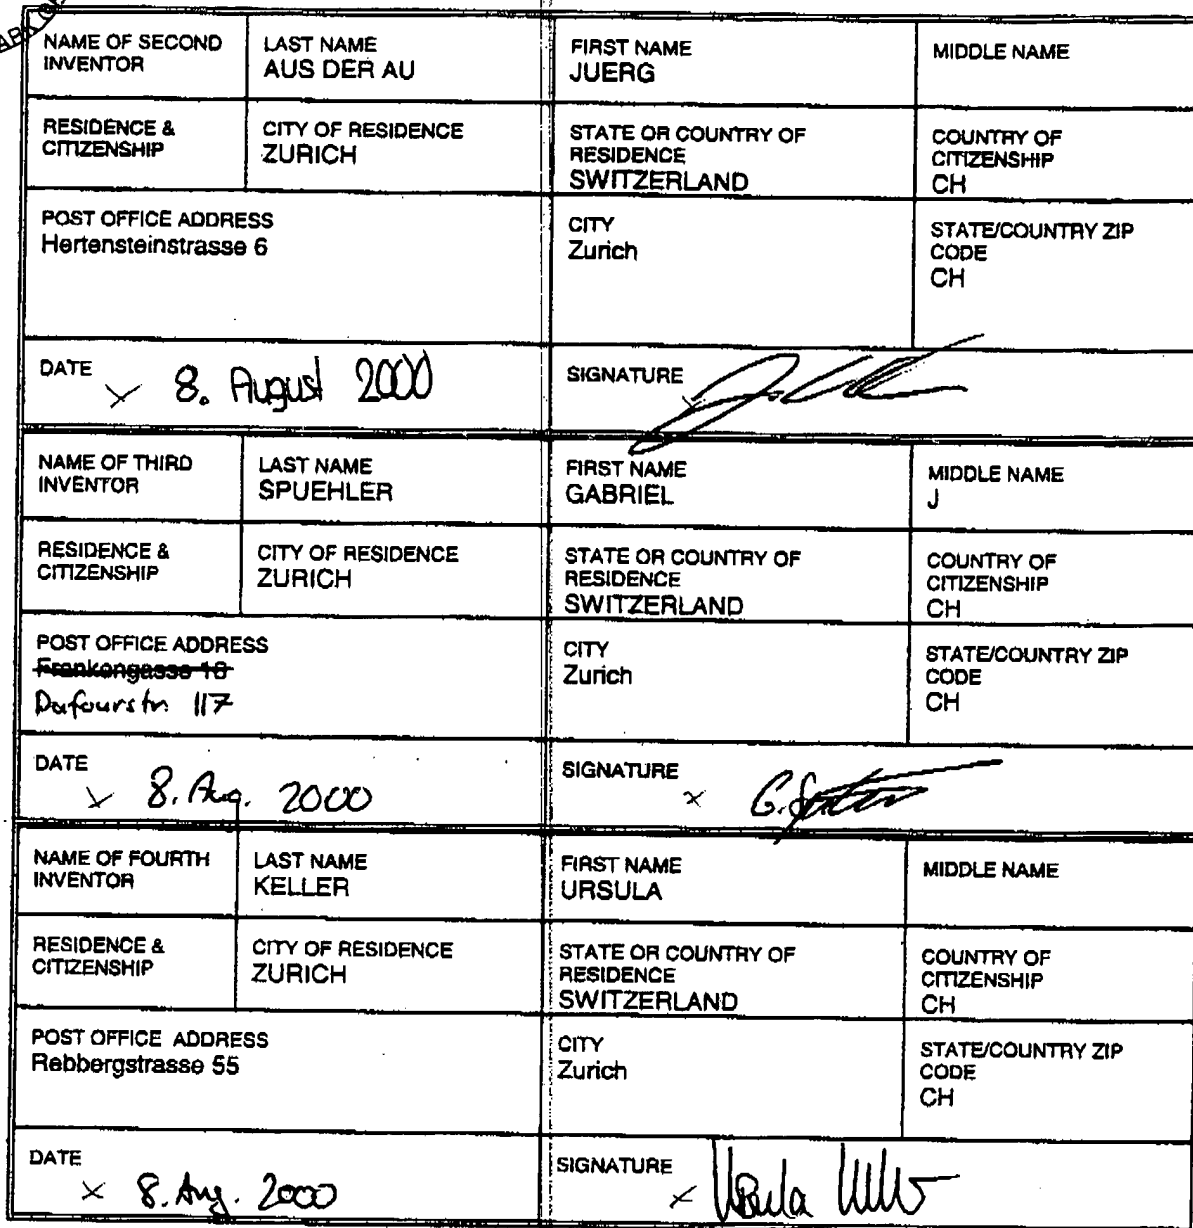 NAME OF SECOND INVENTOR
LAST NAME
AUS DER AU
FIRST NAME
JUERG
MIDDLE NAME
RESIDENCE & CITIZENSHIP
CITY OF RESIDENCE
ZURICH
STATE OR COUNTRY OF RESIDENCE
SWITZERLAND
COUNTRY OF CITIZENSHIP
CH
POST OFFICE ADDRESS
Hertensteinstrasse 6
CITY
Zurich
STATE/COUNTRY ZIP CODE
CH
DATE
x 8. August 2000
SIGNATURE
x
NAME OF THIRD INVENTOR
LAST NAME
SPUEHLER
FIRST NAME
GABRIEL
MIDDLE NAME
J
RESIDENCE & CITIZENSHIP
CITY OF RESIDENCE
ZURICH
STATE OR COUNTRY OF RESIDENCE
SWITZERLAND
COUNTRY OF CITIZENSHIP
CH
POST OFFICE ADDRESS
Frankengasse 18
Dufourstr. 117
CITY
Zurich
STATE/COUNTRY ZIP CODE
CH
DATE
x 8. Aug. 2000
SIGNATURE
x G.
NAME OF FOURTH INVENTOR
LAST NAME
KELLER
FIRST NAME
URSULA
MIDDLE NAME
RESIDENCE & CITIZENSHIP
CITY OF RESIDENCE
ZURICH
STATE OR COUNTRY OF RESIDENCE
SWITZERLAND
COUNTRY OF CITIZENSHIP
CH
POST OFFICE ADDRESS
Rebbergstrasse 55
CITY
Zurich
STATE/COUNTRY ZIP CODE
CH
DATE
x 8. Aug. 2000
SIGNATURE
x Ursula Keller